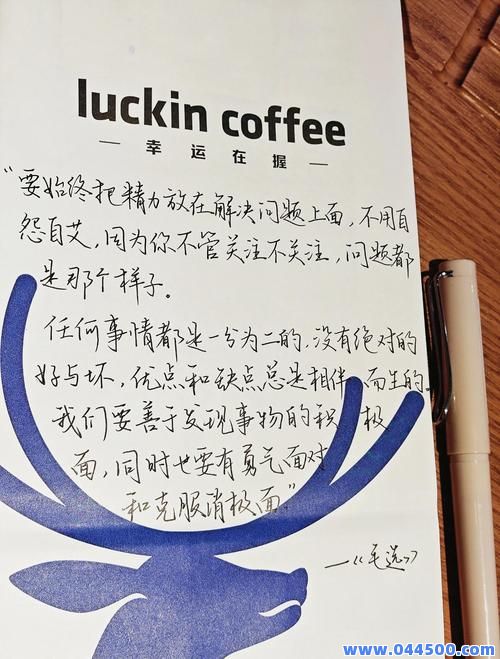 luckin coffee
— 幸运在握 —
“要始终把精力放在解决问题上面，不用自
怨自艾，因为你不管关注不关注，问题都
是那个样子。
任何事情都是一分为二的，没有绝对的
好与坏，优点和缺点总是相伴而生的。
我们要善于发现事物的积极
面，同时也要有勇气面对
和克服消极面”
—《毛选》
www.044500.com